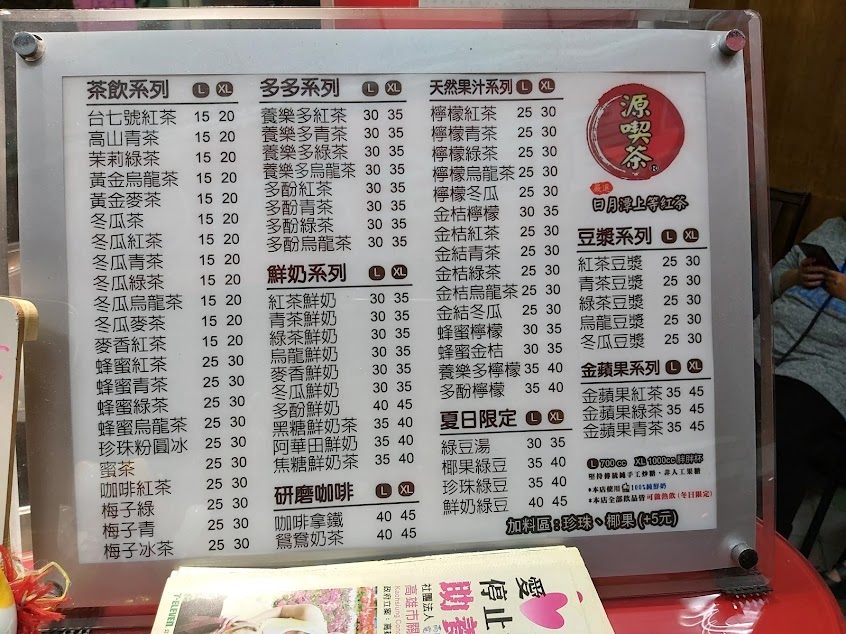 茶飲系列 L XL
台七號紅茶 15 20
高山青茶 15 20
茉莉綠茶 15 20
黃金烏龍茶 15 20
黃金麥茶 15 20
冬瓜茶 15 20
冬瓜紅茶 15 20
冬瓜青茶 15 20
冬瓜綠茶 15 20
冬瓜烏龍茶 15 20
冬瓜麥茶 15 20
麥香紅茶 15 20
蜂蜜紅茶 25 30
蜂蜜青茶 25 30
蜂蜜綠茶 25 30
蜂蜜烏龍茶 25 30
珍珠粉圓冰 25 30
蜜茶 25 30
咖啡紅茶 25 30
梅子綠 25 30
梅子青 25 30
梅子冰茶 25 30
多多系列 L XL
養樂多紅茶 30 35
養樂多青茶 30 35
養樂多綠茶 30 35
養樂多烏龍茶 30 35
多酚紅茶 30 35
多酚青茶 30 35
多酚綠茶 30 35
多酚烏龍茶 30 35
鮮奶系列 L XL
紅茶鮮奶 30 35
青茶鮮奶 30 35
綠茶鮮奶 30 35
烏龍鮮奶 30 35
麥香鮮奶 30 35
冬瓜鮮奶 30 35
多酚鮮奶 40 45
黑糖鮮奶茶 35 40
阿華田鮮奶 35 40
焦糖鮮奶茶 35 40
研磨咖啡 L XL
咖啡拿鐵 40 45
鴛鴦奶茶 40 45
天然果汁系列 L XL
檸檬紅茶 25 30
檸檬青茶 25 30
檸檬綠茶 25 30
檸檬烏龍茶 25 30
檸檬冬瓜 25 30
金桔檸檬 30 35
金桔紅茶 25 30
金結青茶 25 30
金桔綠茶 25 30
金桔烏龍茶 25 30
金結冬瓜 25 30
蜂蜜檸檬 30 35
蜂蜜金桔 30 35
養樂多檸檬 35 40
多酚檸檬 35 40
夏日限定 L XL
綠豆湯 30 35
椰果綠豆 35 40
珍珠綠豆 35 40
鮮奶綠豆 40 45
加料區:珍珠、椰果 (+5元)
源喫茶
嚴選
日月潭上等紅茶
豆漿系列 L XL
紅茶豆漿 25 30
青茶豆漿 25 30
綠茶豆漿 25 30
烏龍豆漿 25 30
冬瓜豆漿 25 30
金蘋果系列 L XL
金蘋果紅茶 35 45
金蘋果綠茶 35 45
金蘋果青茶 35 45
L 700cc XL 1000cc 胖胖杯
堅持傳統純手工炒糖,非人工果糖
*本店使用 100%純鮮奶
*本店全部飲品皆可做熱飲(冬日限定)
7-ELEVEN
社團法人
高雄市關
助養
愛
停止